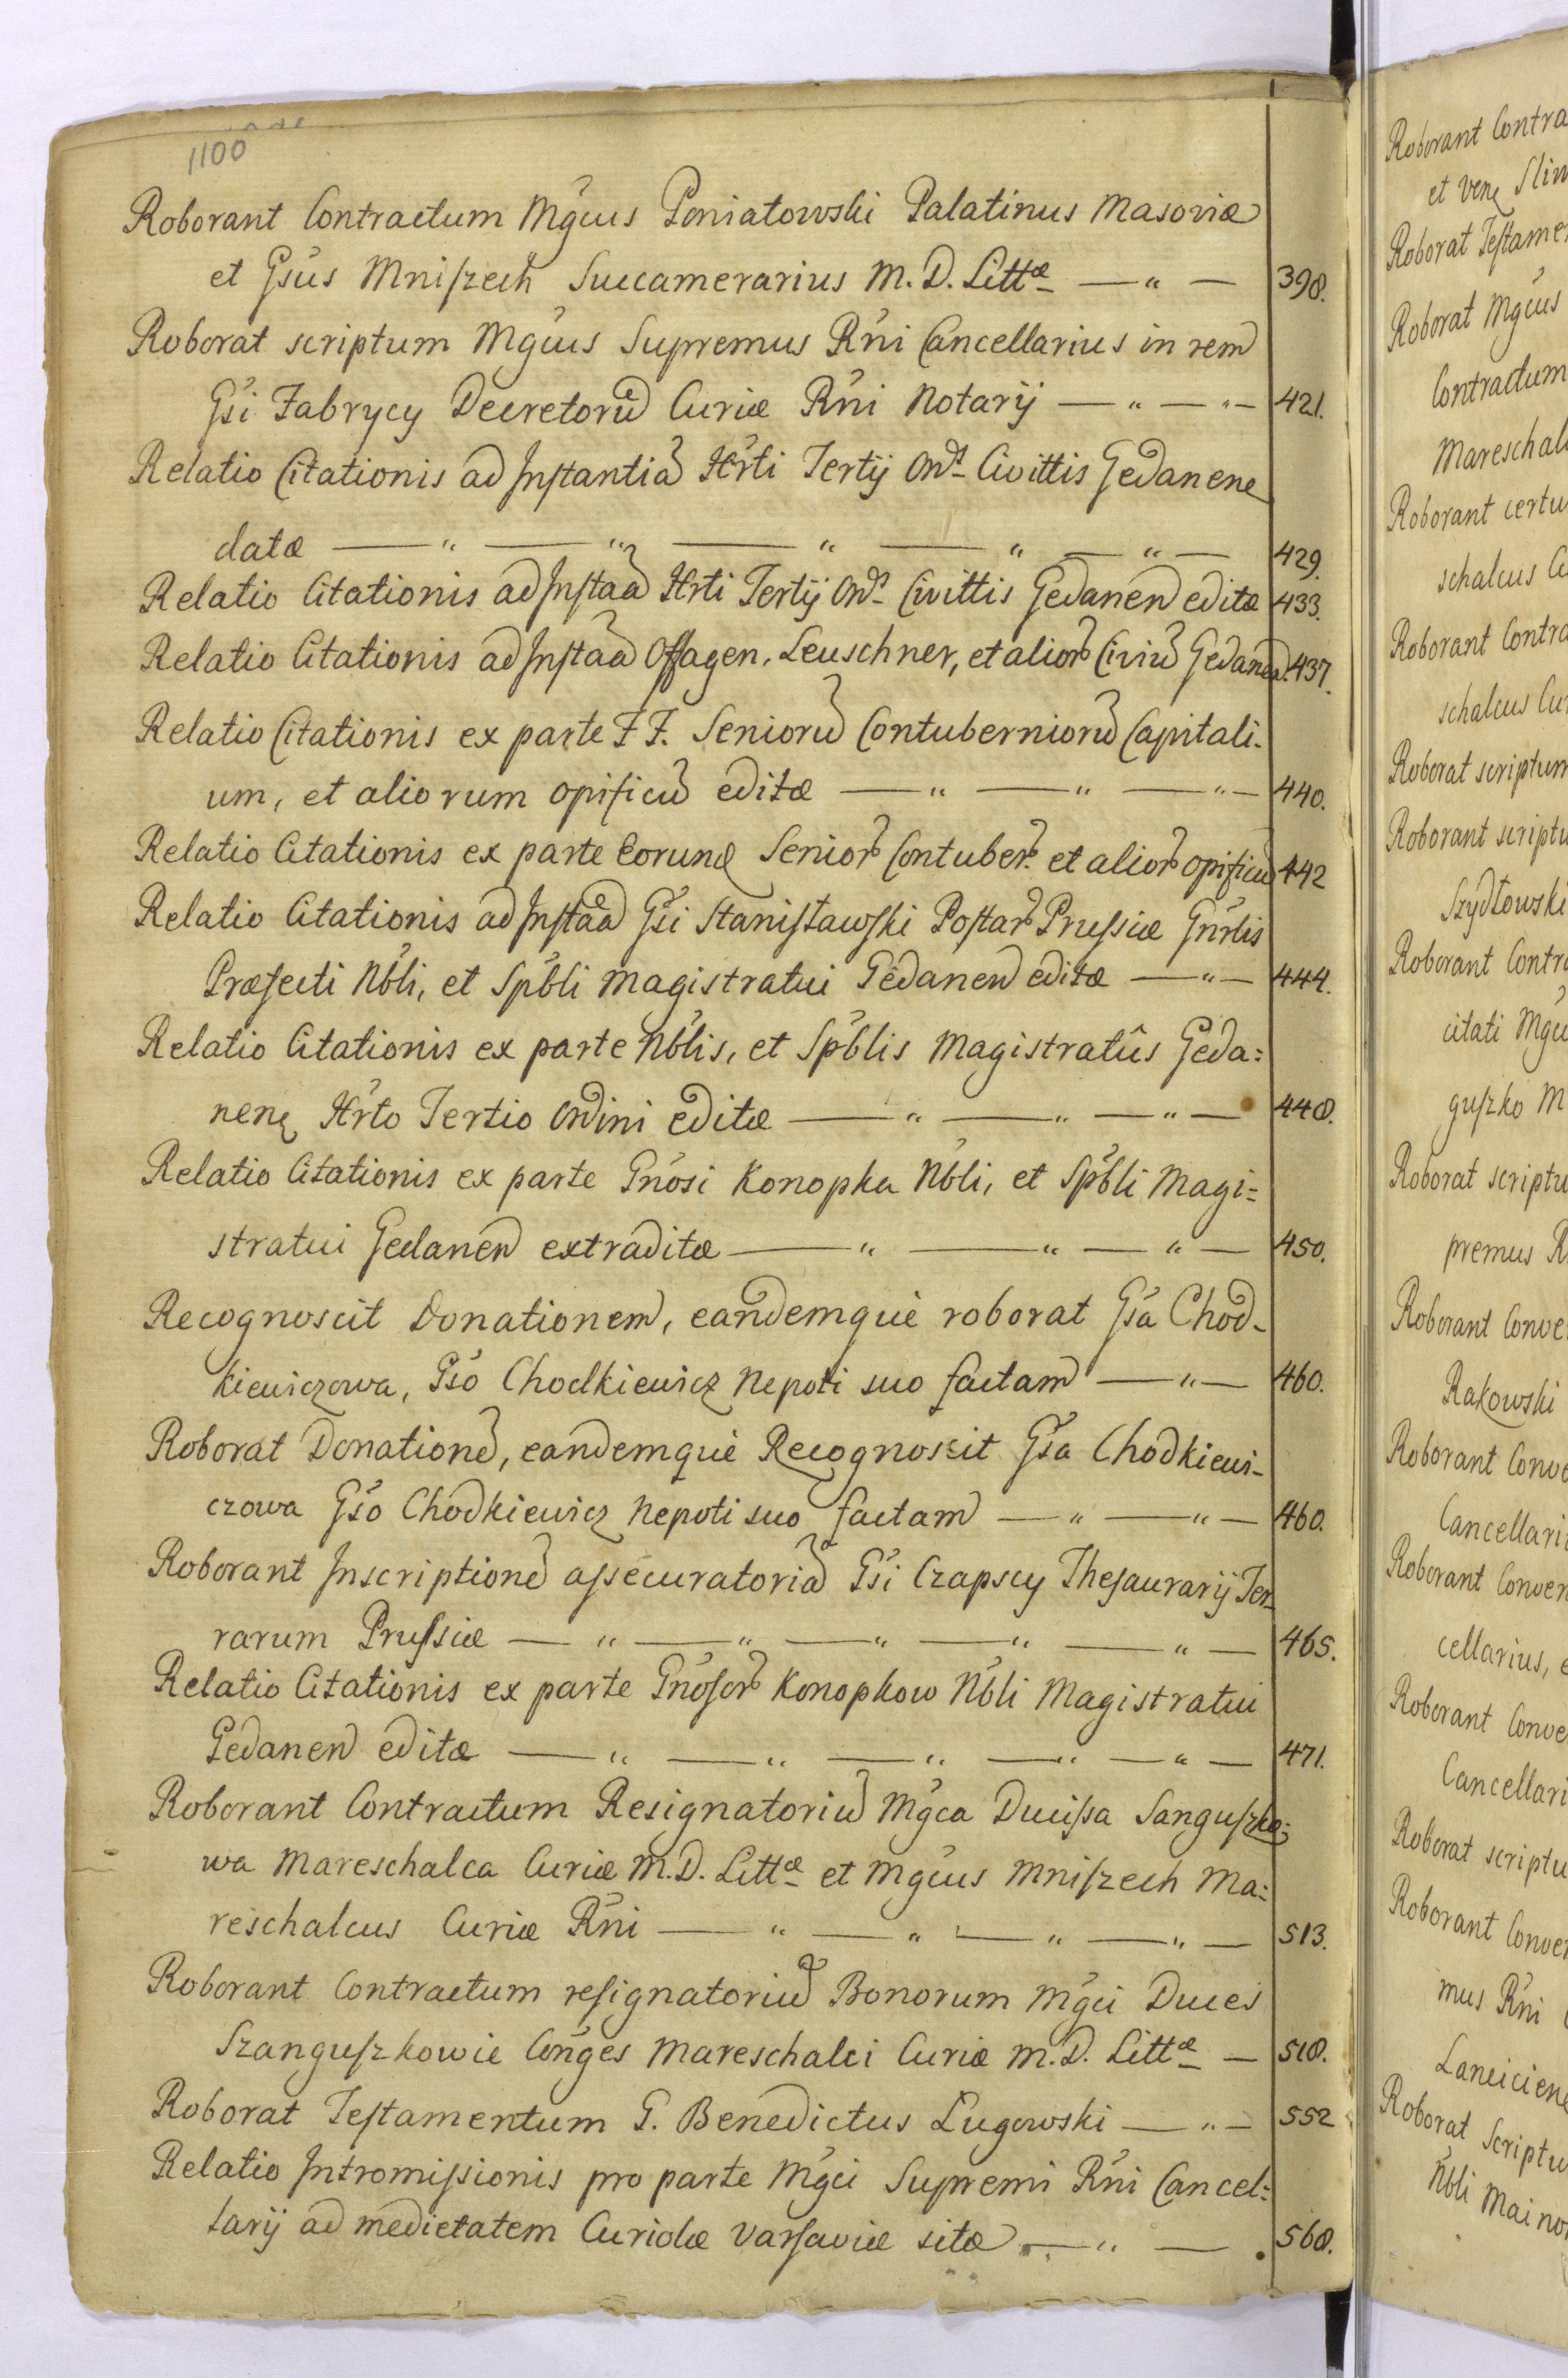 1100
Roborant Contractum Mgcus Poniatowski Palatinus Masoviæ
et Gsus Mniszech Succamerarius M. D. Littæ — " — 398.
Roborat scriptum Mgcus Supremus Rni Cancellarius in rem
Gsi Fabrycy Decretorũ Curiæ Rni Notarij — " — " — 421.
Relatio Citationis ad Instantiã Hrti Tertij Ords Civittis Gedanene
datæ — " — " — " — " — " — 429.
Relatio Citationis ad Instaã Hrti Tertij Ords Civittis Gedanen editæ 433.
Relatio Citationis ad Instaã Offagen. Leuschner, et alior Civiũ Gedanen. 437.
Relatio Citationis ex parte F F. Seniorũ Contuberniorũ Capitali-
um, et aliorum opificũ editæ — " — " — " — 440.
Relatio Citationis ex parte Eorund Senior Contuber. et alior opificũ 442
Relatio Citationis ad Instaã Gsi Stanisławski Postar Prussiæ Gnrlis
Præfecti Nbli, et Spbli Magistratui Gedanen editæ — " — 444.
Relatio Citationis ex parte Nblis, et Spblis Magistratûs Geda:
nenę Hrto Tertio Ordini editæ — " — " — " — 448.
Relatio Citationis ex parte Gnosi Konopka Nbli, et Spbli Magi=
stratui Gedanen extraditæ — " — " — " — 450.
Recognoscit Donationem, eandemque roborat Gsa Chod-
kiewiczowa, Gso Chodkiewicz Nepoti suo factam — " — 460.
Roborat Donationẽ, eandemque Recognoscit Gsa Chodkiewi-
czowa Gso Chodkiewicz Nepoti suo factam — " — " — 460.
Roborant Inscriptionẽ assecuratoriã Gsi Czapscy Thesaurarij Ter-
rarum Prussiæ — " — " — " — " — " — 465.
Relatio Citationis ex parte Gnosor Konopkow Nbli Magistratui
Gedanen editæ — " — " — " — " — " — 471.
Roborant Contractum Resignatoriũ Mgca Ducissa Sanguszko:
wa Mareschalca Curiæ M. D. Littæ et Mgcus Mniszech Ma:
reschalcus Curiæ Rni — " — " — " — " — 513.
Roborant Contractum resignatoriũ Bonorum Mgci Duces
Szanguszkowie Cõnges Mareschalci Curiæ M. D. Littæ — 518.
Roborat Testamentum G. Benedictus Lugowski — " — 552
Relatio Intromissionis pro parte Mgci Supremi Rni Cancel:
larij ad medietatem Curiolæ Varsaviæ sitæ — " — 568.
Roborant Contra
et venę Slin
Roborat Testame
Roborat Mgcus
Contractum
Mareschal
Roborant certu
schalcus C
Roborant Contra
schalcus Cu
Roborat scriptum
Roborant scriptu
Szydłowski
Roborant Contra
citati Mgc
guszko M
Roborat scriptu
premus R
Roborant Conve
Rakowski
Roborant Conve
Cancellari
Roborant Conven
cellarius, e
Roborant Conve
Cancellari
Roborat scriptu
Roborant Conven
mus Rni
Lanciciene
Roborat Scriptu
Nbli Maino